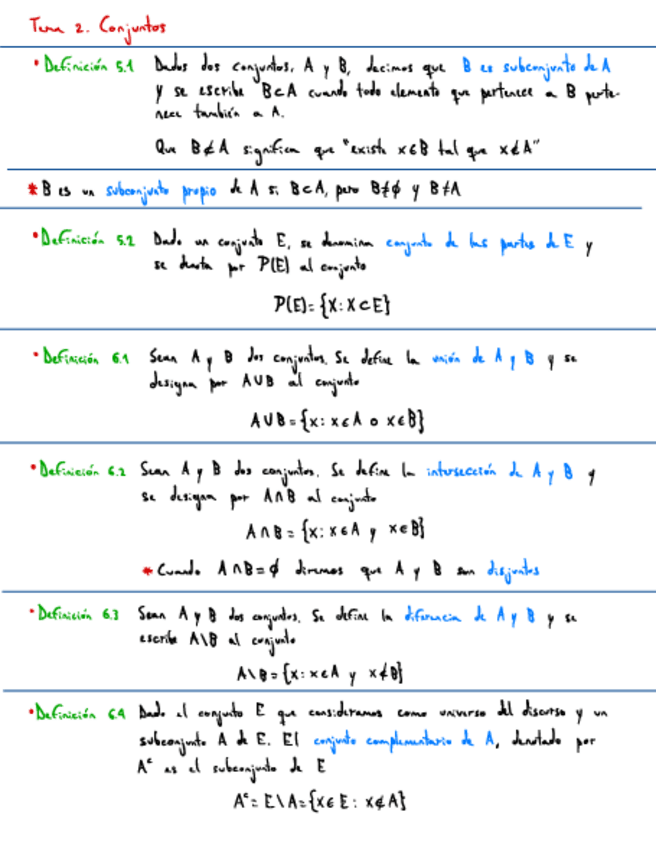 Tema 2. Conjuntos
• Definición 5.1 Dados dos conjuntos, A y B, decimos que B es subconjunto de A
y se escribe B⊂A cuando todo elemento que pertenece a B perte-
nece también a A.
Que B⊄A significa que "existe x∈B tal que x∉A"
* B es un subconjunto propio de A si B⊂A, pero B≠∅ y B≠A
• Definición 5.2 Dado un conjunto E, se denomina conjunto de las partes de E y
se denota por P(E) al conjunto
P(E)={X: X⊂E}
• Definición 6.1 Sean A y B dos conjuntos. Se define la unión de A y B y se
designa por A∪B al conjunto
A∪B={x: x∈A o x∈B}
• Definición 6.2 Sean A y B dos conjuntos. Se define la intersección de A y B y
se designa por A∩B al conjunto
A∩B={x: x∈A y x∈B}
* Cuando A∩B=∅ diremos que A y B son disjuntos
• Definición 6.3 Sean A y B dos conjuntos. Se define la diferencia de A y B y se
escribe A\B al conjunto
A\B={x: x∈A y x∉B}
• Definición 6.4 Dado el conjunto E que consideramos como universo del discurso y un
subconjunto A de E. El conjunto complementario de A, denotado por
Aᶜ es el subconjunto de E
Aᶜ=E\A={x∈E: x∉A}